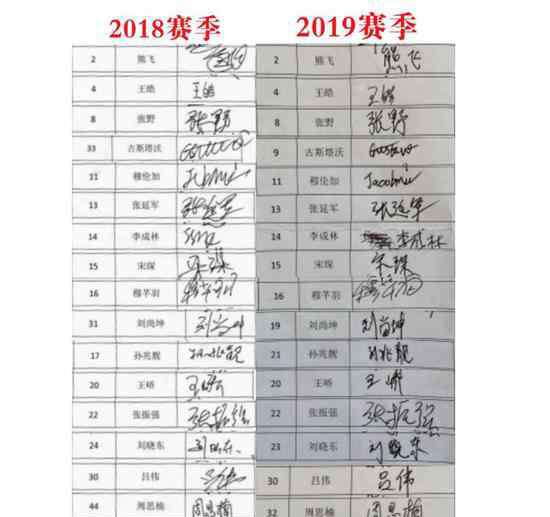 2018赛季 2019赛季
2 熊飞 2 熊飞 熊飞
4 王皓 王皓 4 王皓 王皓
8 张野 张野 8 张野 张野
33 古斯塔沃 9 古斯塔沃 Gustavo
11 穆伦加 11 穆伦加
13 张延军 张延军 13 张延军 张延军
14 李成林 14 李成林 李成林
15 宋琛 宋琛 15 宋琛 宋琛
16 穆芊羽 16 穆芊羽
31 刘尚坤 刘尚坤 19 刘尚坤 刘尚坤
17 孙兆靓 孙兆靓 21 孙兆靓 孙兆靓
20 王峤 王峤 20 王峤 王峤
22 张振强 张振强 22 张振强 张振强
24 刘晓东 刘晓东 23 刘晓东 刘晓东
30 吕伟 吕伟 30 吕伟 吕伟
44 周思楠 周思楠 32 周思楠 周思楠